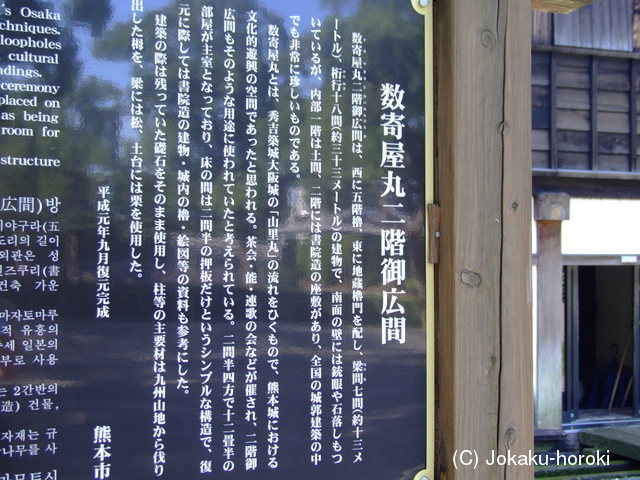 数寄屋丸二階御広間
数寄屋丸二階御広間は、西に五階櫓、東に地蔵櫓門を配し、梁間七間(約十三メ
ートル)、桁行十八間(約三十三メートル)の建物で、南面の壁には銃眼や石落しもつ
いているが、内部一階は土間、二階には書院造の座敷があり、全国の城郭建築の中
でも非常に珍しいものである。
数寄屋丸とは、秀吉築城大阪城の「山里丸」の流れをひくもので、熊本城における
文化的遊興の空間であったと思われる。茶会・能・連歌の会などが催され、二階御
広間もそのような用途に使われていたと考えられている。二間半四方で十二畳半の
部屋が主室となっており、床の間は二間半の押板だけというシンプルな構造で、復
元に際しては書院造の建物・城内の櫓・絵図等の資料も参考にした。
建築の際は残っていた礎石をそのまま使用し、柱等の主要材は九州山地から伐り
出した栂を、梁には松、土台には栗を使用した。
平成元年九月復元完成
熊本市
's Osaka
chniques.
loopholes
cultural
adings.
ceremony
placed on
as being
room for
structure
広間) 방
이야구라(五
도리의 길이
외관은 성
인즈쿠리(書
건축 가운
마자토마루
적 유흥의
세 일본의
부로 사용
는 2간반의
造) 건물,
자재는 규
나무를 사
(C) Jokaku-horoki